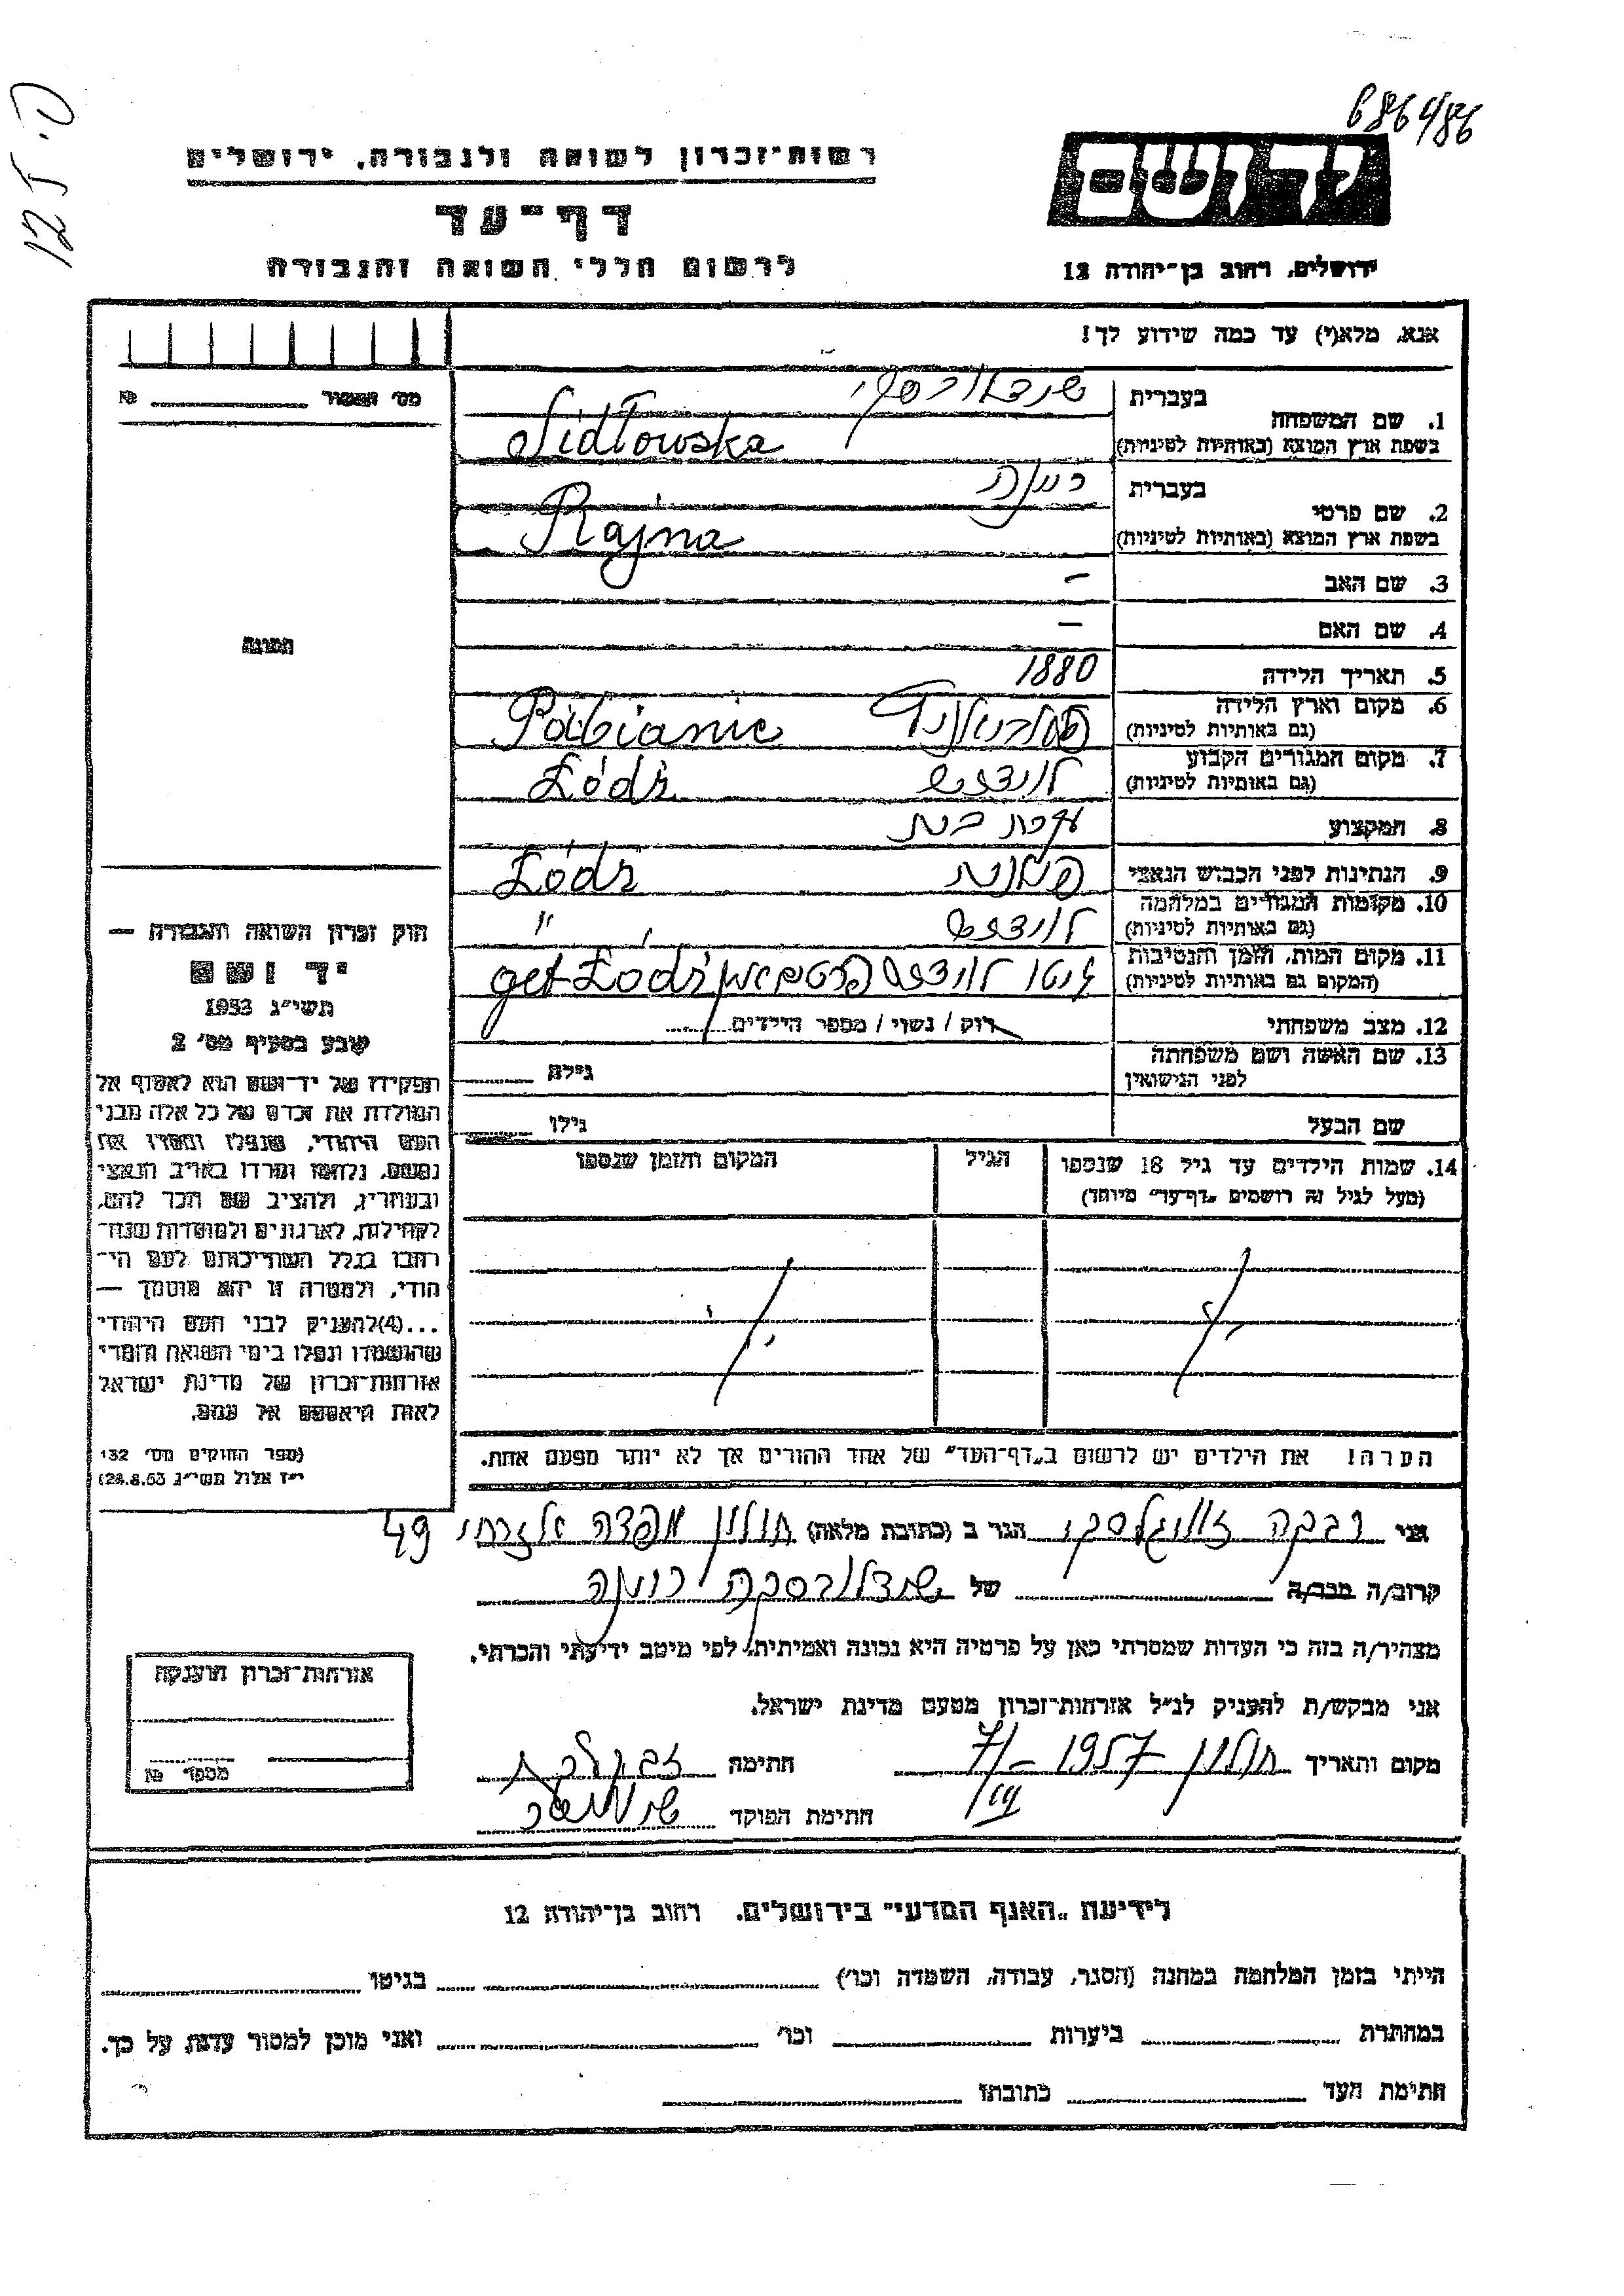 686/86
רשות־זכרון לשואה ולגבורה, ירושלים
דף־עד
לרשום חללי השואה והגבורה
יד ושם
ירושלים, רחוב בן־יהודה 12
אנא, מלא(י) עד כמה שידוע לך!
מס׳ תמשור №
1. שם המשפחה
בעברית
בשפת ארץ המוצא (באותיות לטיניות) Sidłowska
2. שם פרטי
בעברית
בשפת ארץ המוצא (באותיות לטיניות) Rajna
3. שם האב —
4. שם האם —
5. תאריך הלידה 1880
6. מקום וארץ הלידה
(גם באותיות לטיניות) Pabianic
7. מקום המגורים הקבוע
(גם באותיות לטיניות) לודז Łódź
8. המקצוע עקרת בית
9. הנתינות לפני הכבוש הנאצי פולנית Łódź
10. מקומות המגורים במלחמה
(גם באותיות לטיניות) "
11. מקום המות, הזמן והנסיבות
(המקום גם באותיות לטיניות) גטו get Łódź
12. מצב משפחתי רוק / נשוי / מספר הילדים
13. שם האשה ושם משפחתה
לפני הנישואין גילה
שם הבעל גילו
14. שמות הילדים עד גיל 18 שנספו
(מעל לגיל זה רושמים „דף־עד״ מיוחד)
הגיל
המקום והזמן שנספו
הערה! את הילדים יש לרשום ב„דף־העד״ של אחד ההורים אך לא יותר מפעם אחת.
תמונה
חוק זכרון השואה והגבורה —
יד ושם
תשי״ג 1953
קובע בסעיף מס׳ 2
תפקידו של יד־ושם הוא לאסוף אל
המולדת את זכרם של כל אלה מבני
העם היהודי, שנפלו ומסרו את
נפשם, נלחמו ומרדו באויב הנאצי
ובעוזריו, ולהציב שם וזכר להם,
לקהילות, לארגונים ולמוסדות שנח־
רבו בגלל השתייכותם לעם הי־
הודי, ולמטרה זו יהא מוסמך —
...(4)להעניק לבני העם היהודי
שהושמדו ונפלו בימי השואה והמרי
אזרחות־זכרון של מדינת ישראל
לאות היאספם אל עמם.
(ספר החוקים מס׳ 132
י״ז אלול תשי״ג 28.8.53)
אני רבקה הגר ב (כתובת מלאה) חולון 49
קרוב/ה מכר/ה של
מצהיר/ה בזה כי העדות שמסרתי כאן על פרטיה היא נכונה ואמיתית, לפי מיטב ידיעתי והכרתי.
אני מבקש/ת להעניק לנ״ל אזרחות־זכרון מטעם מדינת ישראל.
מקום ותאריך חולון 1957 – 7/ חתימה
חתימת הפוקד
אזרחות־זכרון הוענקה
מספר №
לידיעת „האגף המדעי״ בירושלים. רחוב בן־יהודה 12
הייתי בזמן המלחמה במחנה (הסגר, עבודה, השמדה וכו׳) בגיטו
במחתרת ביערות וכו׳ ואני מוכן למסור עדות על כך.
חתימת העד כתובתו